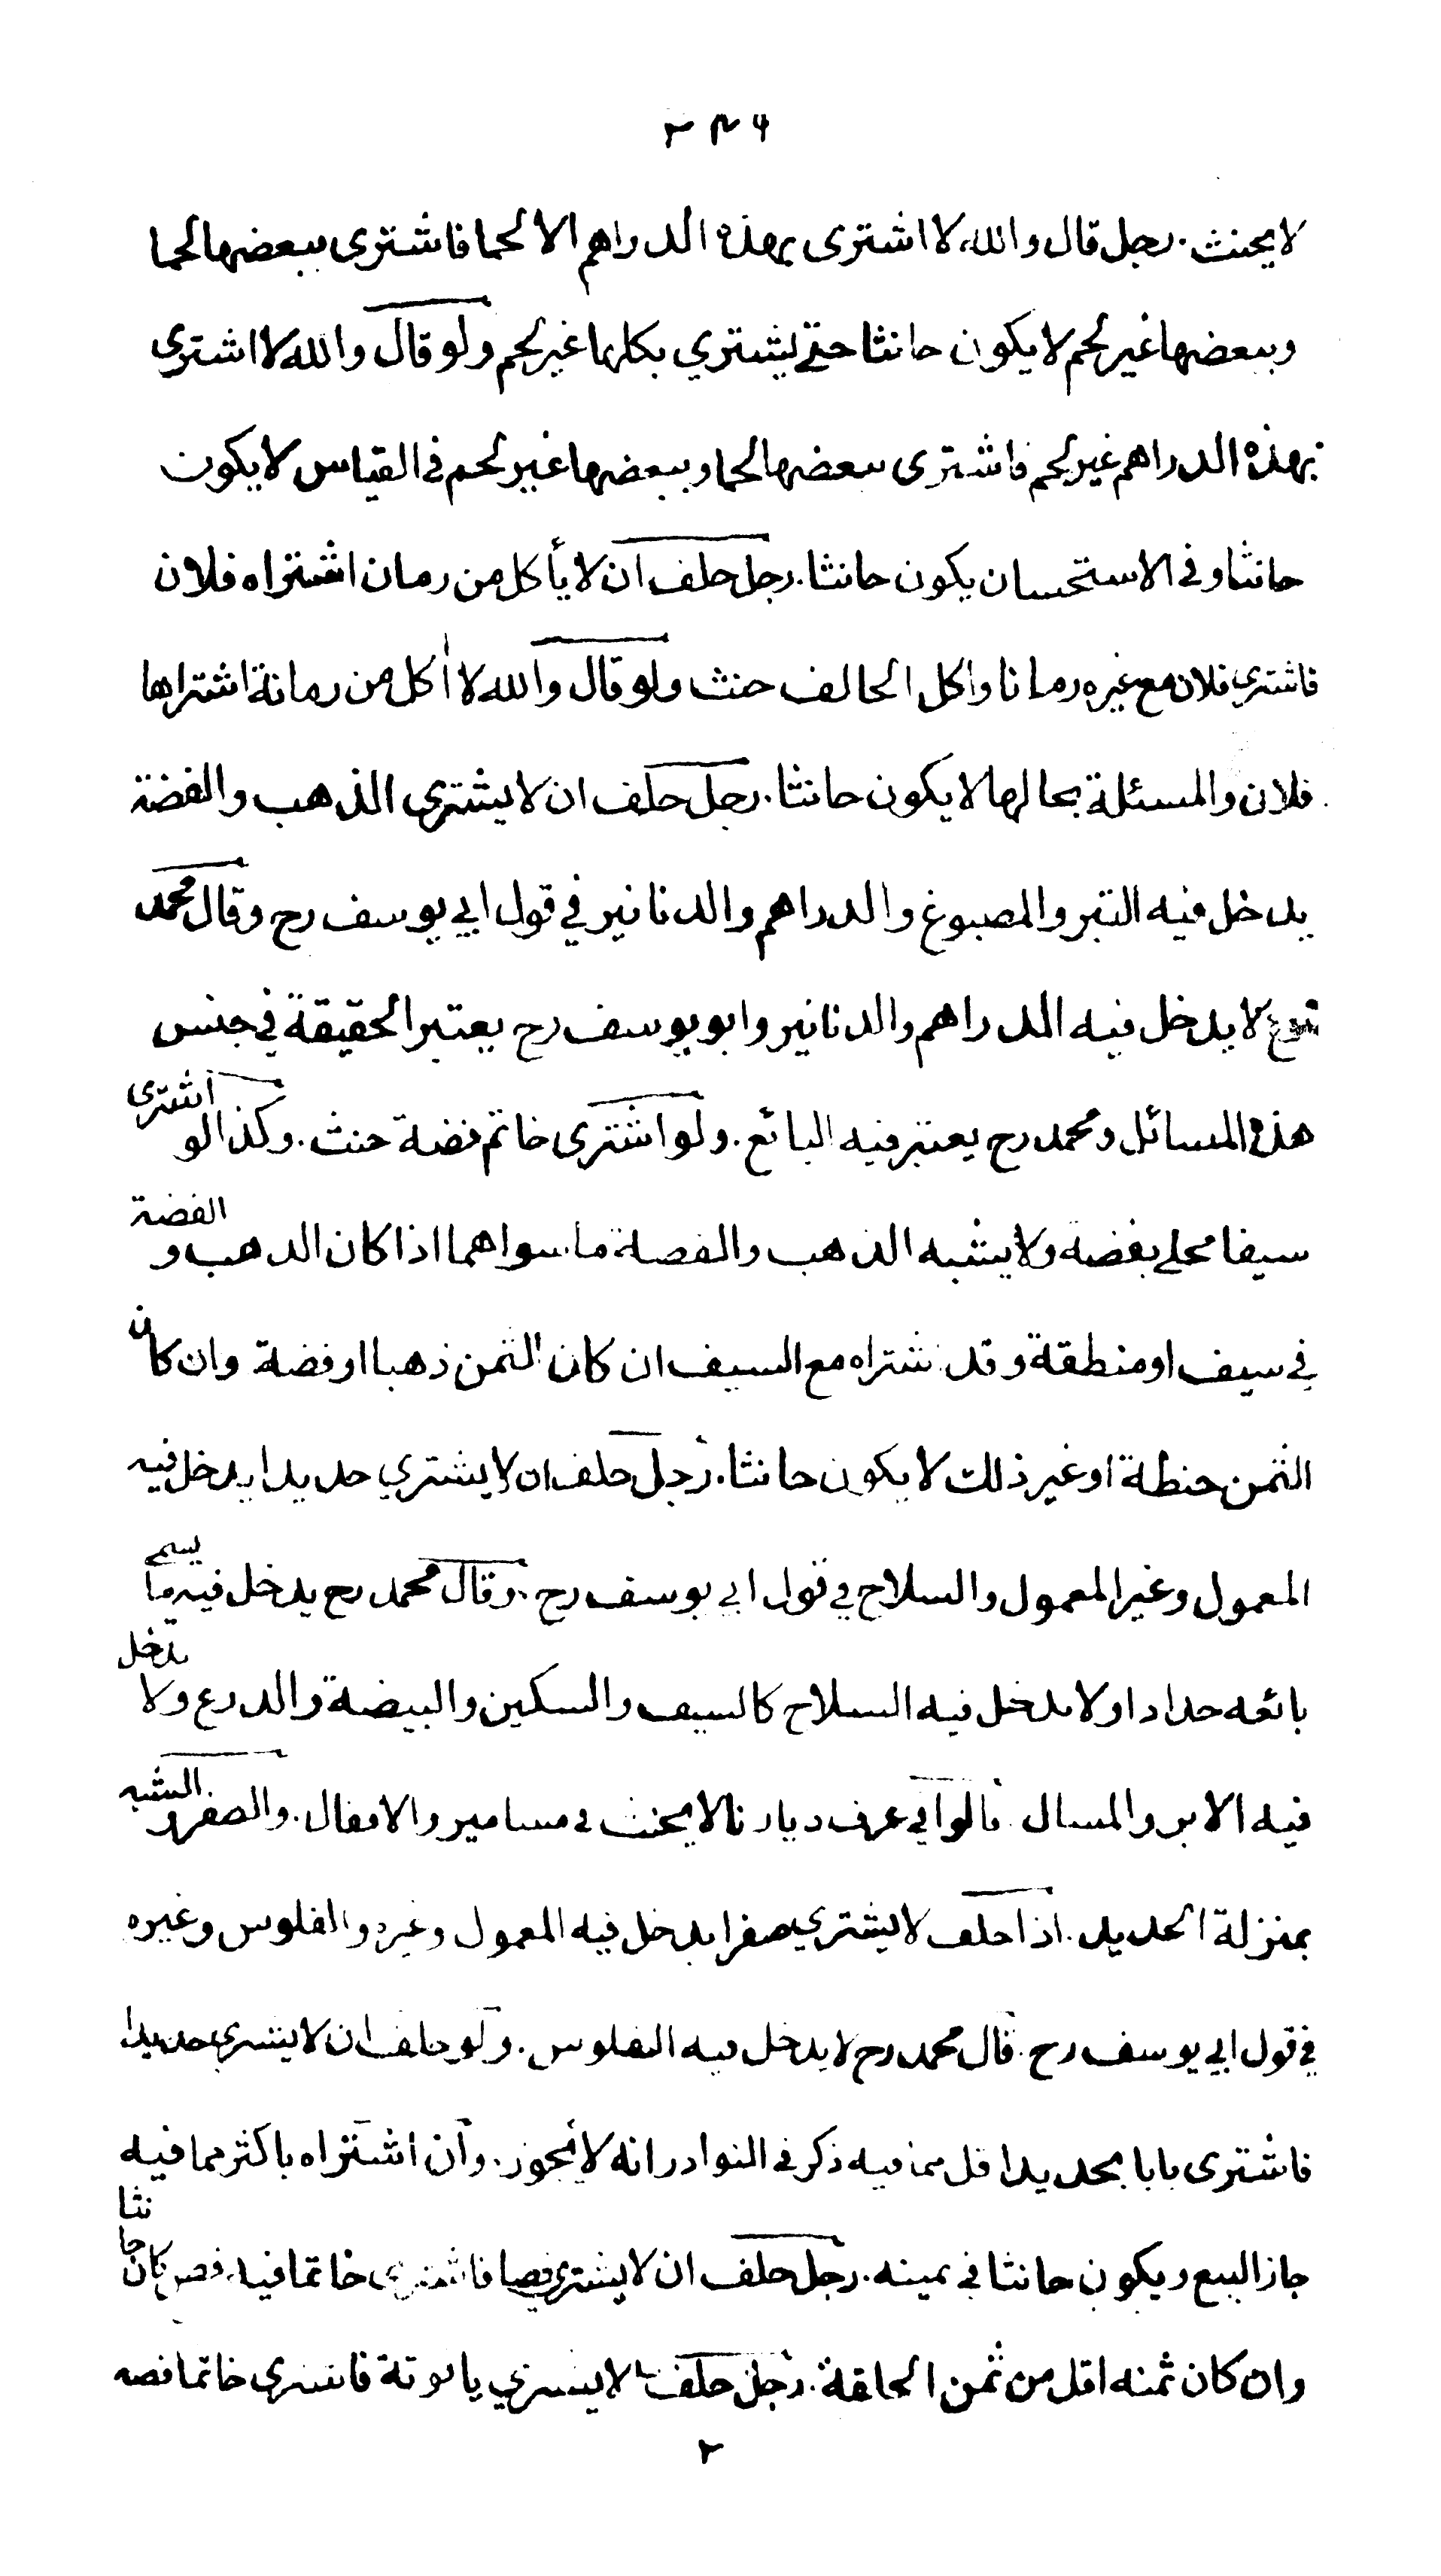 ٢٣٦
لا يحنث. رجل قال والله لا اشترى بهذه الدراهم الا لحما فاشترى ببعضها لحما
وببعضها غير لحم لا يكون حانثا حتے يشتري بكلها غير لحم ولو قال والله لا اشتري
بهذه الدراهم غير لحم فاشترى ببعضها لحما وببعضها غير لحم فى القياس لا يكون
حانثا وفى الاستحسان يكون حانثا. رجل حلف ان لا يأكل من رمان اشتراه فلان
فاشتري فلان مع غيره رمانا واكل الحالف حنث ولو قال والله لا أكل من رمانة اشتراها
فلان والمسئلة بحالها لا يكون حانثا. رجل حلف ان لا يشترى الذهب والفضة
يدخل فيه التبر والمصبوغ والدراهم والدنانير في قول ابي يوسف رح وقال محمد
لا يدخل فيه الدراهم والدنانير وابو يوسف رح يعتبر الحقيقة في جنس
هذه المسائل ومحمد رح يعتبر فيه البائع. ولو اشترى خاتم فضة حنث. وكذا لو اشترى
سيفا محلے بفضة ولا يشبه الذهب والفضة ما سواهما اذا كان الذهب و الفضة
في سيف او منطقة وقد اشتراه مع السيف ان كان الثمن ذهبا او فضة وان كان
الثمن حنطة او غير ذلك لا يكون حانثا. رجل حلف ان لا يشتري حديدا يدخل فيه
المعمول وغير المعمول والسلاح في قول ابي يوسف رح. وقال محمد رح يدخل فيه ما يسمے
بائعه حدادا ولا يدخل فيه السلاح كالسيف والسكين والبيضة والدرع ولا تدخل
فيه الابر والمسال قالوا في عرف ديارنا لا يحنث في مسامير والاقفال. والصفر و الشبه
بمنزلة الحديد. اذا حلف لا يشتري صفرا يدخل فيه المعمول وغيره والفلوس وغيره
في قول ابي يوسف رح. قال محمد رح لا يدخل فيه الفلوس. ولو حلف ان لا يشتري حديدا
فاشترى بابا بحديد اقل مما فيه ذكر فى النوادر انه لا يجوز. وان اشتراه باكثر مما فيه
جاز البيع ويكون حانثا في يمينه. رجل حلف ان لا يشتري فصا فاشترى خاتما فيه فص كان حانثا
وان كان ثمنه اقل من ثمن الحلقة. رجل حلف لا يشتري ياقوتة فاشترى خاتما فصه
٢